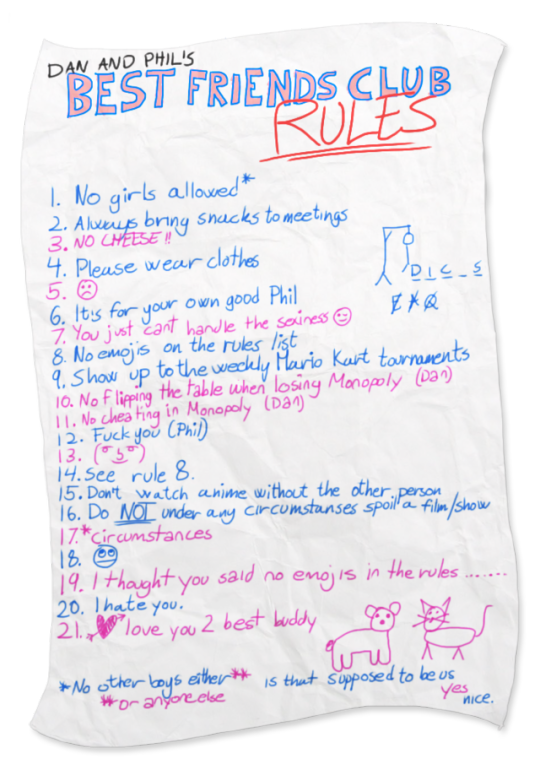 DAN AND PHIL'S
BEST FRIENDS CLUB
RULES
1. No girls allowed*
2. Always bring snacks to meetings
3. NO CHEESE!!
4. Please wear clothes
5. ☹
6. It's for your own good Phil
7. You just cant handle the sexiness 🙂
8. No emojis on the rules list
9. Show up to the weekly Mario Kart tournaments
10. No flipping the table when losing Monopoly (Dan)
11. No cheating in Monopoly (Dan)
12. Fuck you (Phil)
13. ( ͡° ͜ʖ ͡°)
14. See rule 8.
15. Don't watch anime without the other person
16. Do NOT under any circumstanses spoil a film/show
17. *circumstances
18. 🙄
19. I thought you said no emojis in the rules .......
20. I hate you.
21. 💘 love you 2 best buddy
D I C _ S
E X Q
*No other boys either**
**or anyone else
is that supposed to be us
yes
nice.